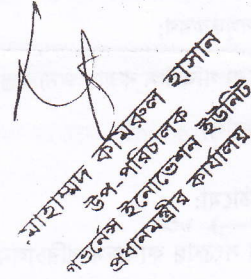 মোহাম্মদ কামরুল হাসান
উপ-পরিচালক
গভর্নেন্স ইনোভেশন ইউনিট
প্রধানমন্ত্রীর কার্যালয়